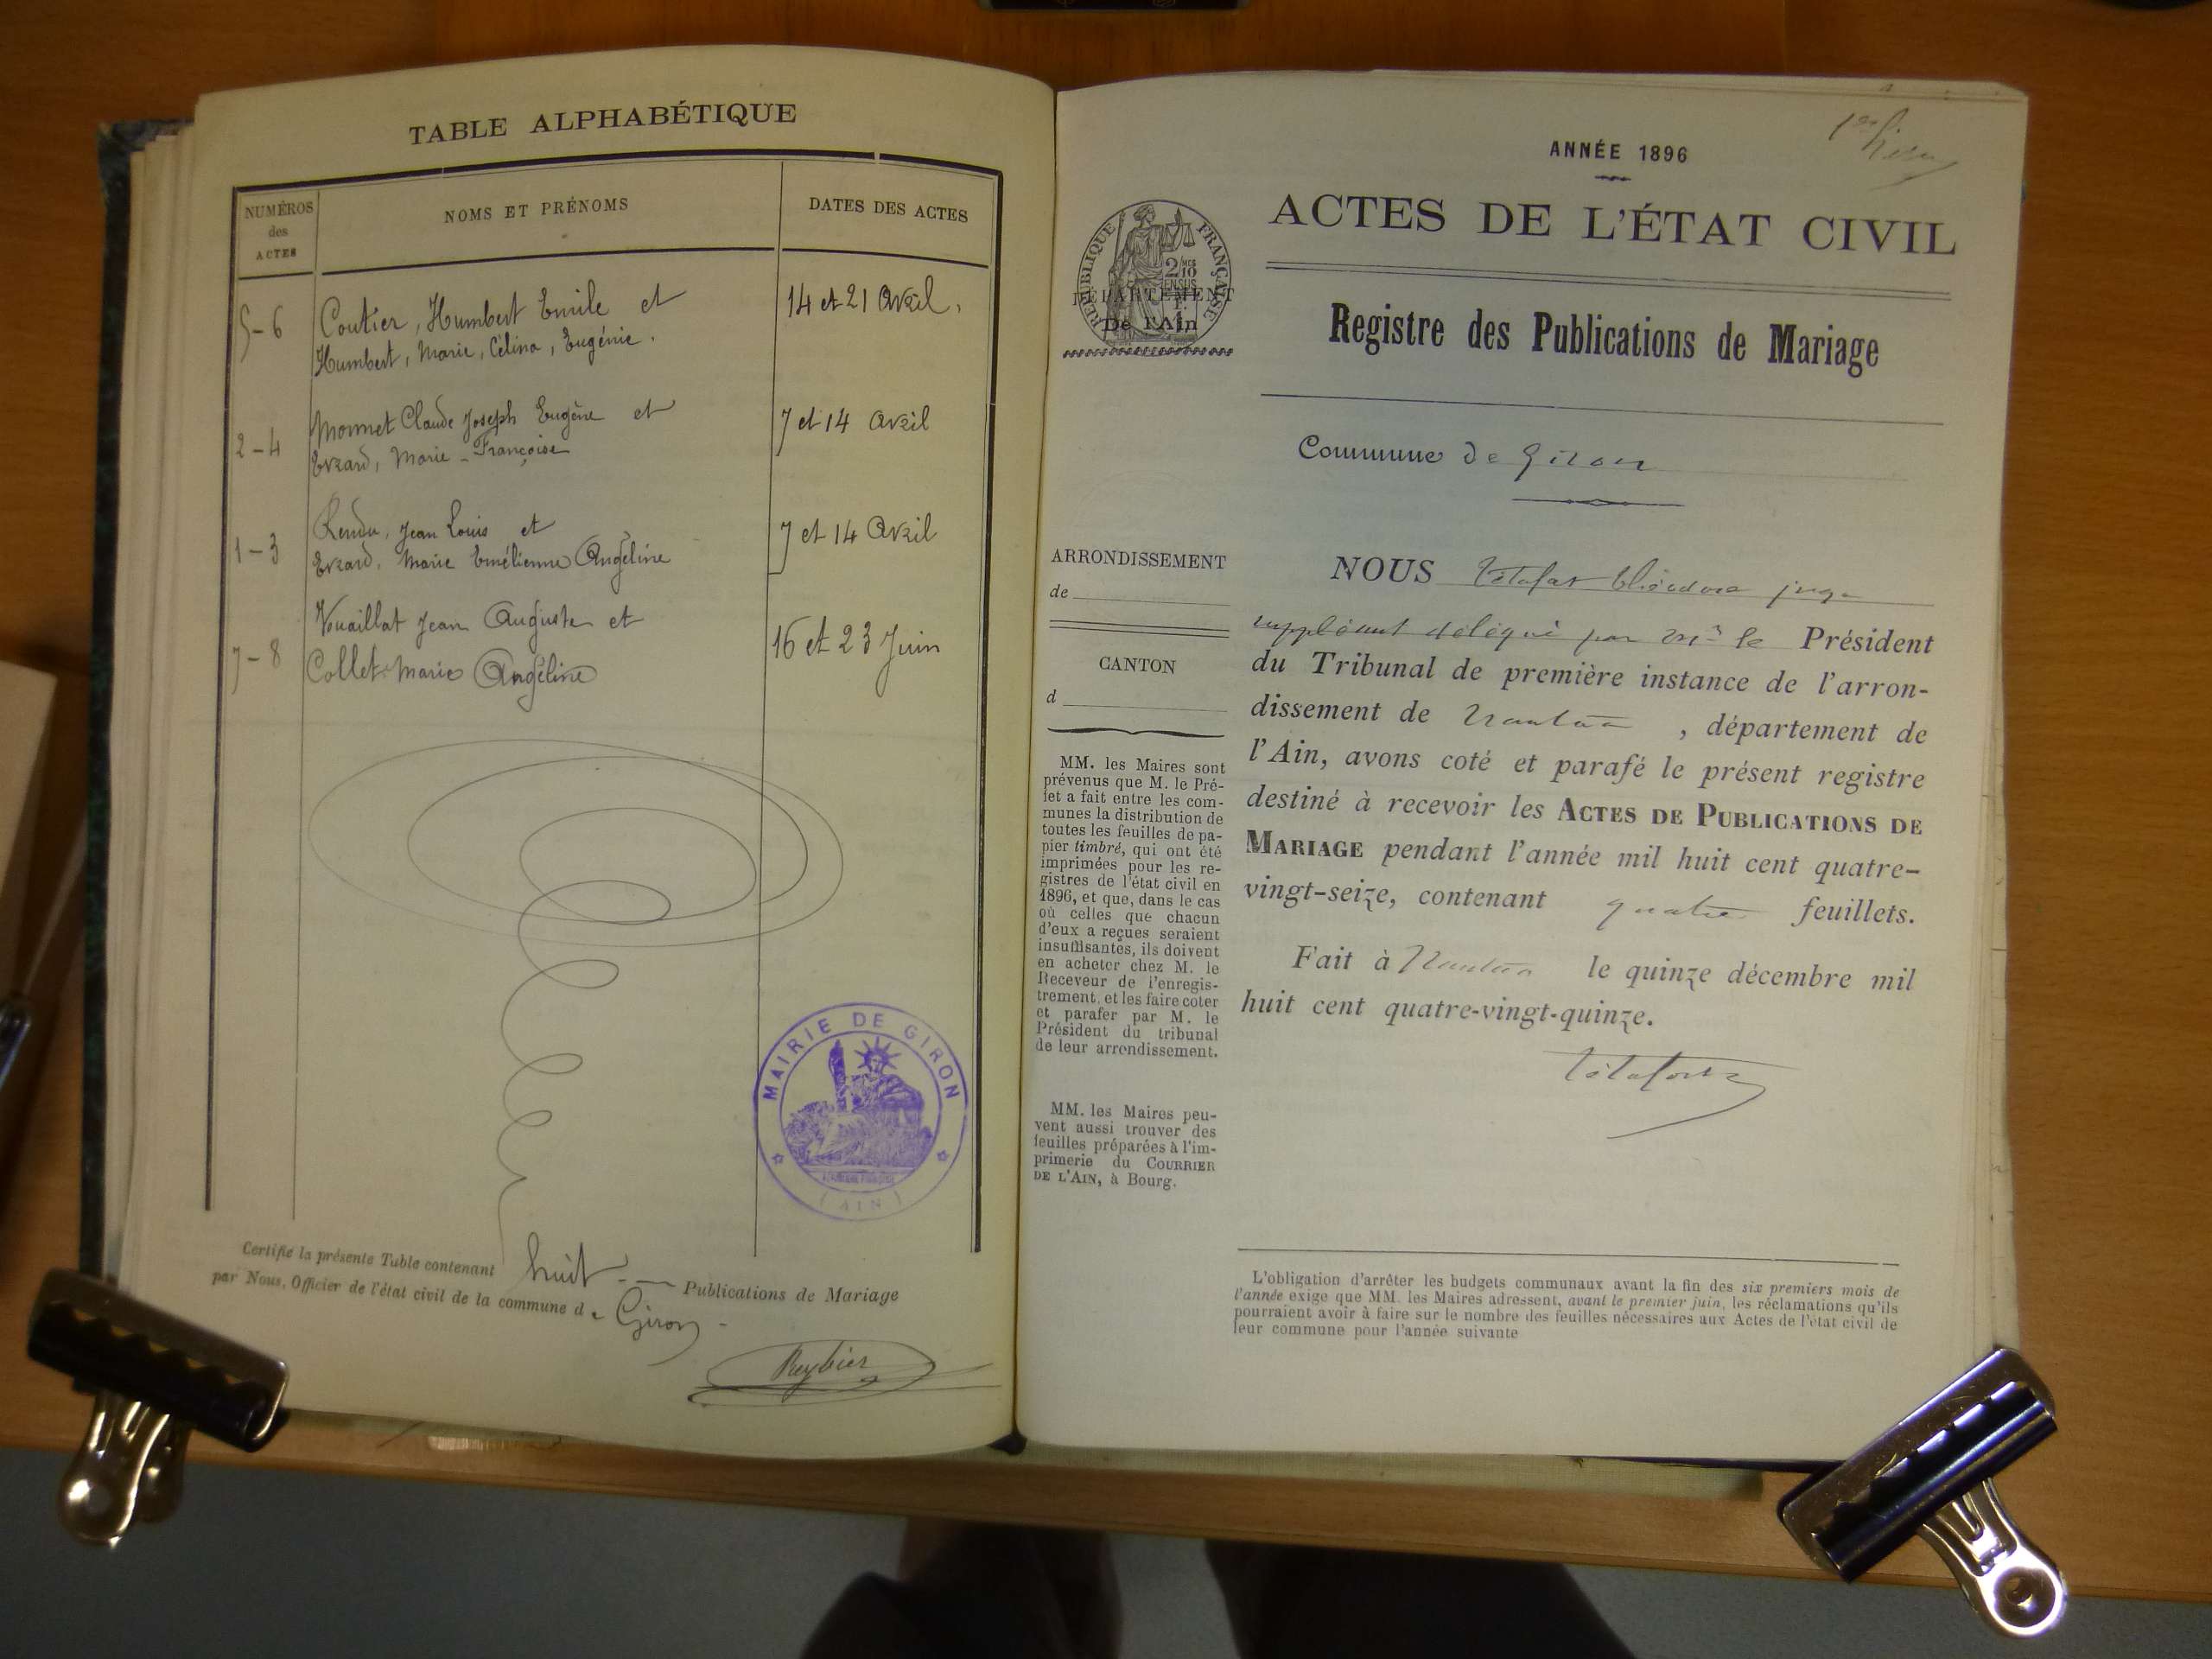 TABLE ALPHABÉTIQUE
NUMÉROS
des
ACTES
NOMS ET PRÉNOMS
DATES DES ACTES
5-6
Coutier, Humbert Emile et
Humbert, Marie, Célina, Eugénie.
14 et 21 Avril.
2-4
Monnet Claude Joseph Eugène et
Evrard, Marie-Françoise
7 et 14 Avril
1-3
Rendu, Jean Louis et
Evrard, Marie Emélienne Angéline
7 et 14 Avril
7-8
Vuaillat Jean Auguste et
Collet Marie Angéline
16 et 23 Juin
MAIRIE DE GIRON
(AIN)
Certifie la présente Table contenant huit Publications de Mariage
par Nous, Officier de l'état civil de la commune de Giron
Reybier
ANNÉE 1896
ACTES DE L'ÉTAT CIVIL
RÉPUBLIQUE FRANÇAISE
DÉPARTEMENT
De l'Ain
Registre des Publications de Mariage
Commune de Giron
ARRONDISSEMENT
de
CANTON
d
MM. les Maires sont
prévenus que M. le Pré-
fet a fait entre les com-
munes la distribution de
toutes les feuilles de pa-
pier timbré, qui ont été
imprimées pour les re-
gistres de l'état civil en
1896, et que, dans le cas
où celles que chacun
d'eux a reçues seraient
insuffisantes, ils doivent
en acheter chez M. le
Receveur de l'enregis-
trement, et les faire coter
et parafer par M. le
Président du tribunal
de leur arrondissement.
MM. les Maires peu-
vent aussi trouver des
feuilles préparées à l'im-
primerie du COURRIER
DE L'AIN, à Bourg.
NOUS théodore juge
suppléant délégué par Mr le Président
du Tribunal de première instance de l'arron-
dissement de Nantua , département de
l'Ain, avons coté et parafé le présent registre
destiné à recevoir les ACTES DE PUBLICATIONS DE
MARIAGE pendant l'année mil huit cent quatre-
vingt-seize, contenant quatre feuillets.
Fait à Nantua le quinze décembre mil
huit cent quatre-vingt-quinze.
L'obligation d'arrêter les budgets communaux avant la fin des six premiers mois de
l'année exige que MM. les Maires adressent, avant le premier juin, les réclamations qu'ils
pourraient avoir à faire sur le nombre des feuilles nécessaires aux Actes de l'état civil de
leur commune pour l'année suivante